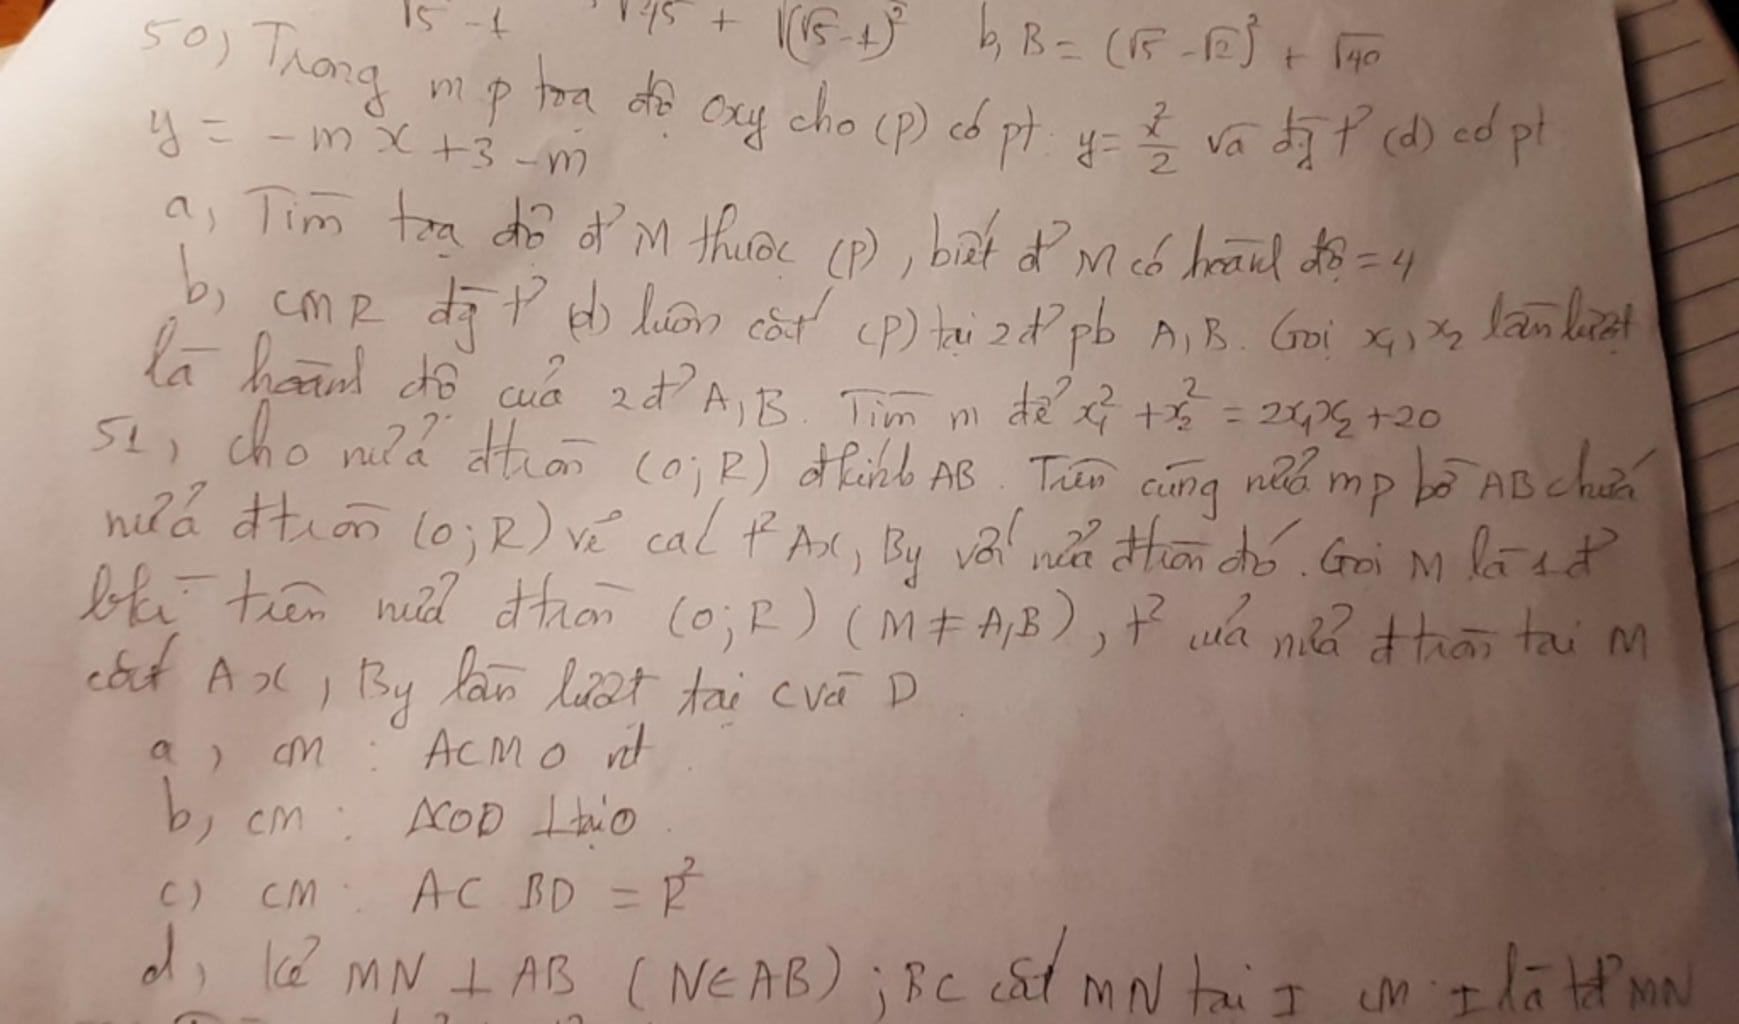 √5 - 1 √45 + √(√5-1)² b, B = (√5 - √2)² + √40
50, Trong mp tọa độ oxy cho (P) có pt: y = x²/2 và đg t² (d) có pt
y = -mx + 3 - m
a, Tìm tọa độ đ² M thuộc (P), biết đ² M có hoành độ = 4
b, CMR đg t² (d) luôn cắt (P) tại 2 đ² pb A, B. Gọi x₁, x₂ lần lượt
là hoành độ của 2 đ² A, B. Tìm m để x₁² + x₂² = 2x₁x₂ + 20
51, cho nửa đtròn (O; R) đkính AB. Trên cùng nửa mp bờ AB chứa
nửa đtròn (O; R) vẽ các t² Ax, By với nửa đtròn đó. Gọi M là 1 đ²
bkì trên nửa đtròn (O; R) (M ≠ A, B), t² của nửa đtròn tại M
cắt Ax, By lần lượt tại C và D
a, CM: ACMO nt.
b, CM: ΔCOD ⊥ tại O.
c) CM: AC BD = R²
d, Kẻ MN ⊥ AB (N ∈ AB); BC cắt MN tại I CM: I là tđ² MN